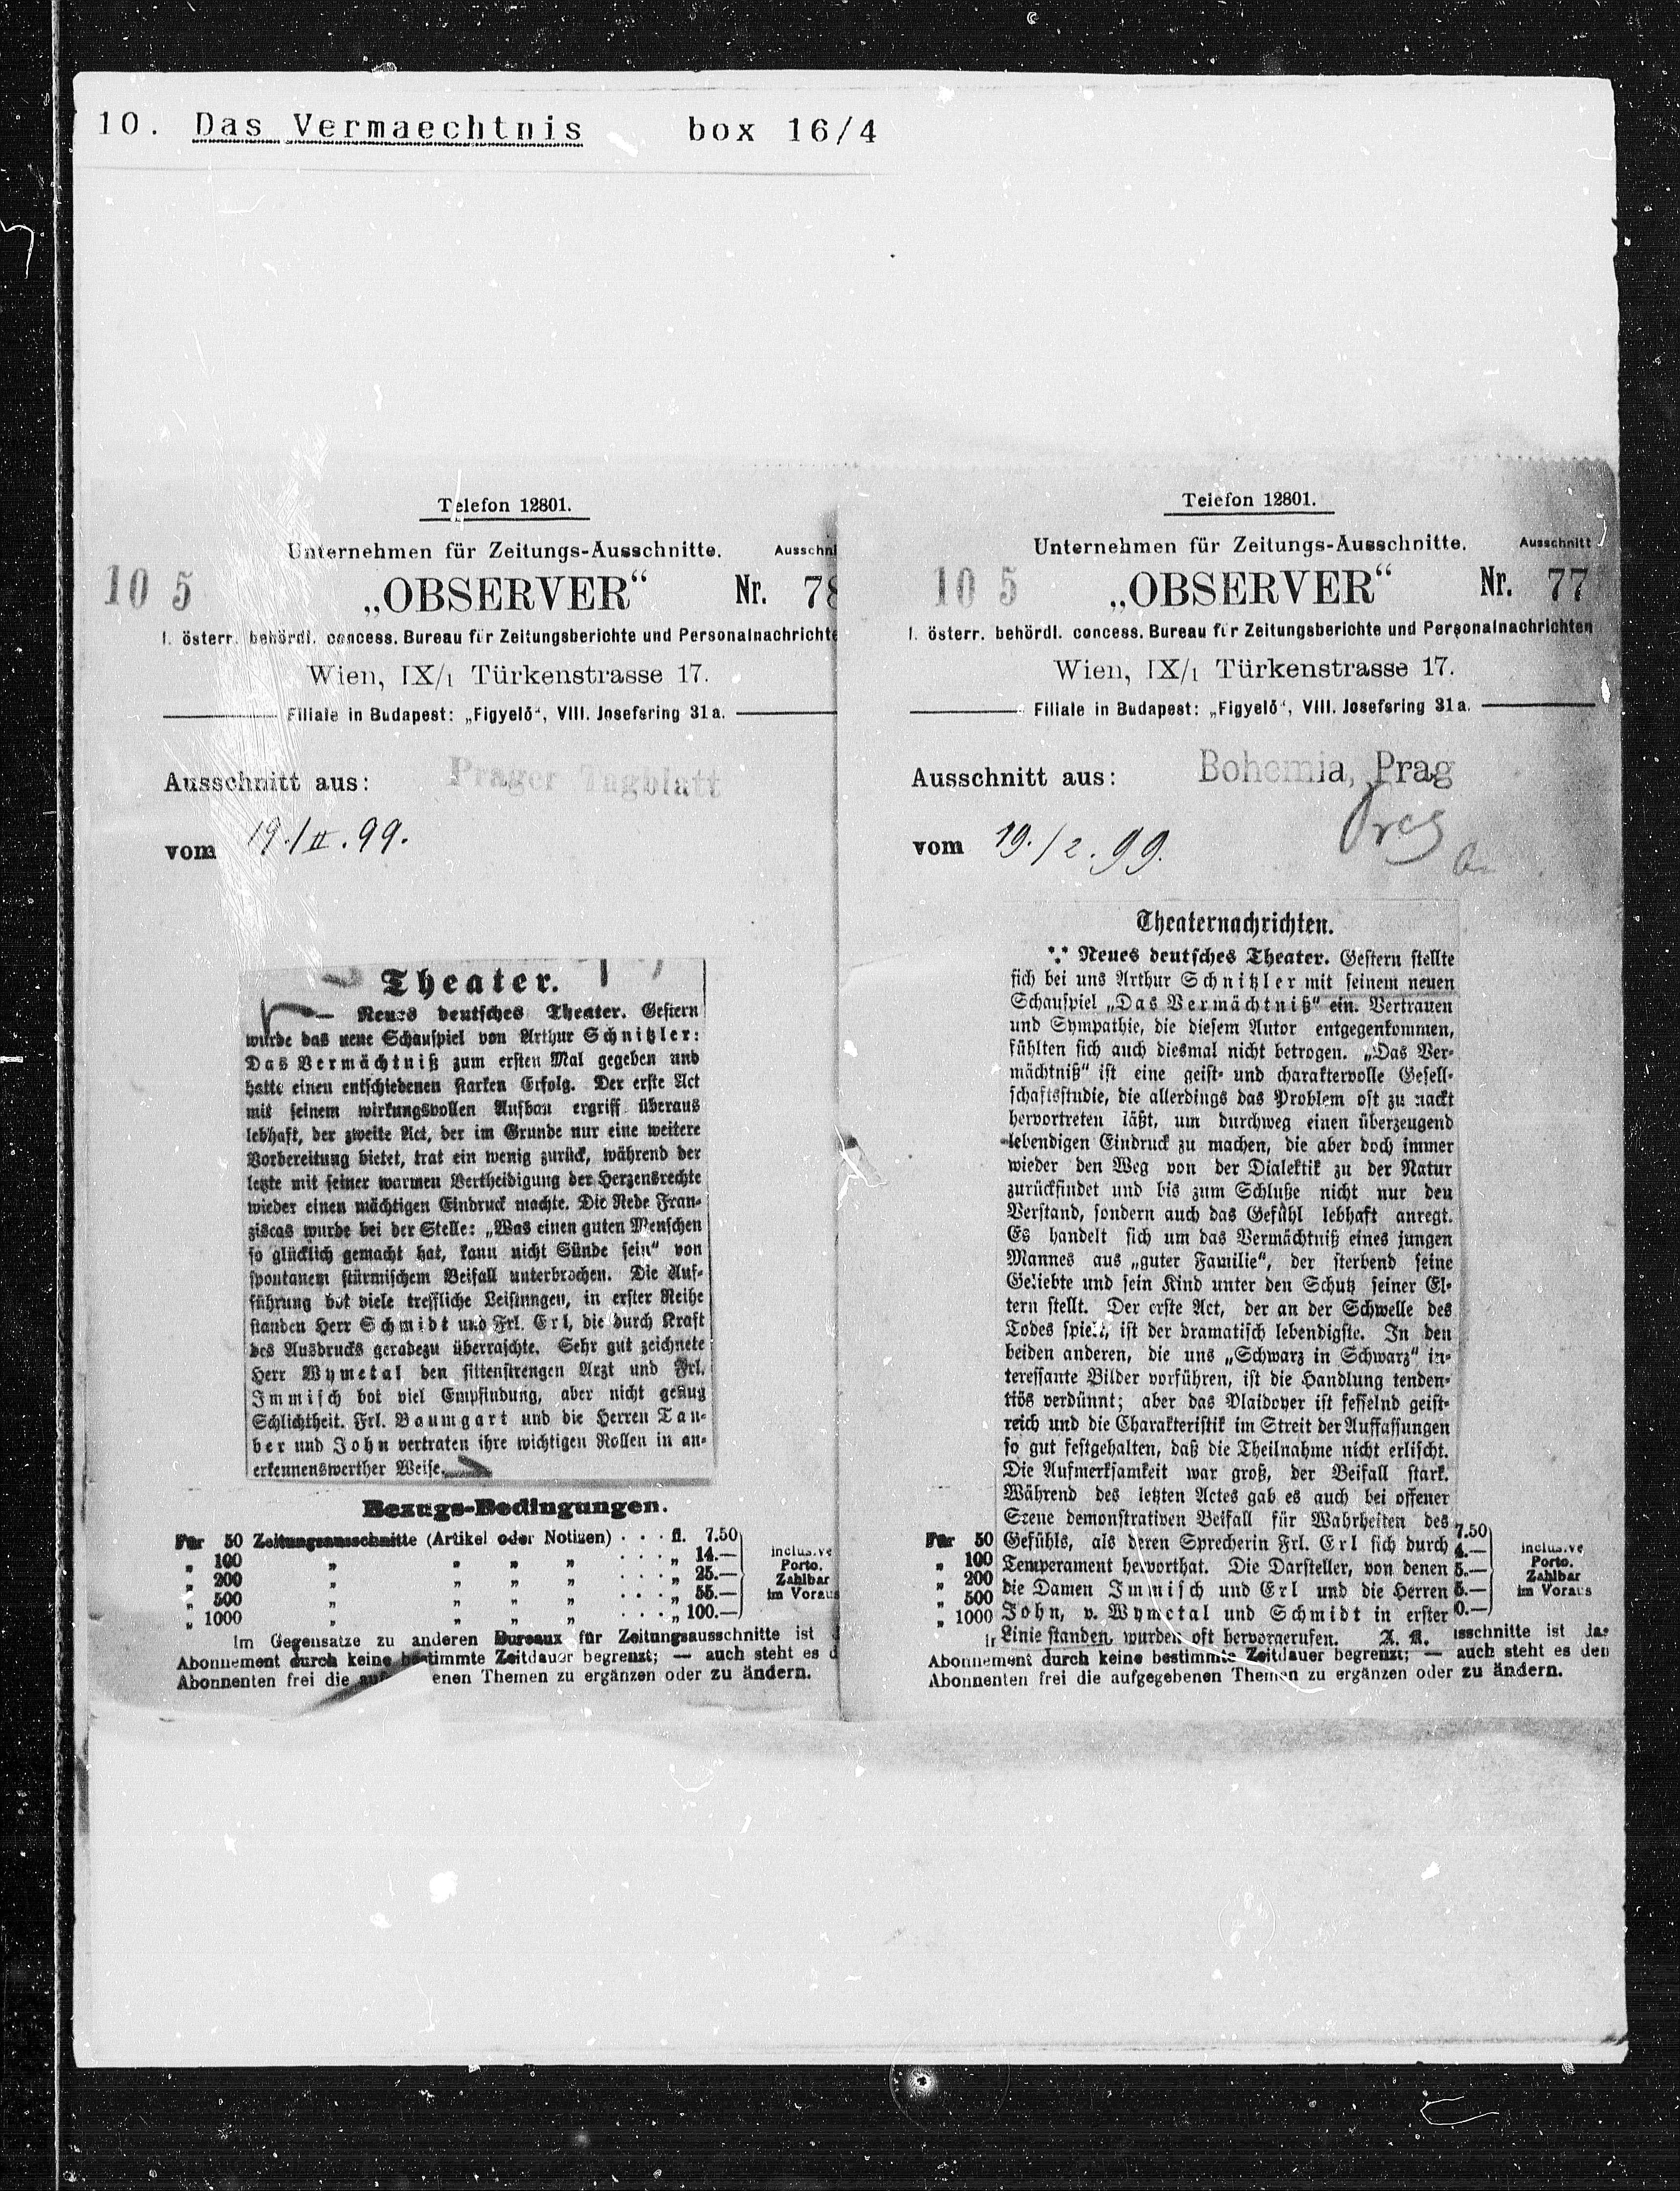 10. Das Vermaechtnis box 16/4
Telefon 12801.
Unternehmen für Zeitungs-Ausschnitte. Ausschni
10 5 „OBSERVER“ Nr. 78
I. österr. behördl. concess. Bureau für Zeitungsberichte und Personalnachrichte
Wien, IX/1 Türkenstrasse 17.
Filiale in Budapest: „Figyelő“, VIII. Josefsring 31a.
Ausschnitt aus: Prager Tagblatt
vom 19./II. 99.
Theater.
— Neues deutsches Theater. Gestern
wurde das neue Schauspiel von Arthur Schnitzler:
Das Vermächtniß zum ersten Mal gegeben und
hatte einen entschiedenen starken Erfolg. Der erste Act
mit seinem wirkungsvollen Aufbau ergriff überaus
lebhaft, der zweite Act, der im Grunde nur eine weitere
Vorbereitung bietet, trat ein wenig zurück, während der
letzte mit seiner warmen Vertheidigung der Herzensrechte
wieder einen mächtigen Eindruck machte. Die Rede Fran-
ziscas wurde bei der Stelle: „Was einen guten Menschen
so glücklich gemacht hat, kann nicht Sünde sein“ von
spontanem stürmischem Beifall unterbrochen. Die Auf-
führung bot viele treffliche Leistungen, in erster Reihe
standen Herr Schmidt und Frl. Erl, die durch Kraft
des Ausdrucks geradezu überraschte. Sehr gut zeichnete
Herr Wymetal den sittenstrengen Arzt und Frl.
Immisch bot viel Empfindung, aber nicht genug
Schlichtheit. Frl. Baumgart und die Herren Tau-
ber und John vertraten ihre wichtigen Rollen in an-
erkennenswerther Weise.
Bezugs-Bedingungen.
Für 50 Zeitungsausschnitte (Artikel oder Notizen) . . . fl. 7.50
„ 100 „ „ „ „ . . . „ 14.—
„ 200 „ „ „ „ . . . „ 25.—
„ 500 „ „ „ „ . . . „ 55.—
„ 1000 „ „ „ „ . . . „ 100.—
inclusive
Porto.
Zahlbar
im Voraus
Im Gegensatze zu anderen Bureaux für Zeitungsausschnitte ist d
Abonnement durch keine bestimmte Zeitdauer begrenzt; — auch steht es d
Abonnenten frei die auf enen Themen zu ergänzen oder zu ändern.
Telefon 12801.
Unternehmen für Zeitungs-Ausschnitte. Ausschnitt
10 5 „OBSERVER“ Nr. 77
I. österr. behördl. concess. Bureau für Zeitungsberichte und Personalnachrichten
Wien, IX/1 Türkenstrasse 17.
Filiale in Budapest: „Figyelő“, VIII. Josefsring 31a.
Ausschnitt aus: Bohemia, Prag
vom 19./2. 99.
Theaternachrichten.
Neues deutsches Theater. Gestern stellte
sich bei uns Arthur Schnitzler mit seinem neuen
Schauspiel „Das Vermächtniß“ ein. Vertrauen
und Sympathie, die diesem Autor entgegenkommen,
fühlten sich auch diesmal nicht betrogen. „Das Ver-
mächtniß“ ist eine geist- und charaktervolle Gesell-
schaftsstudie, die allerdings das Problem oft zu nackt
hervortreten läßt, um durchweg einen überzeugend
lebendigen Eindruck zu machen, die aber doch immer
wieder den Weg von der Dialektik zu der Natur
zurückfindet und bis zum Schluße nicht nur den
Verstand, sondern auch das Gefühl lebhaft anregt.
Es handelt sich um das Vermächtniß eines jungen
Mannes aus „guter Familie“, der sterbend seine
Geliebte und sein Kind unter den Schutz seiner El-
tern stellt. Der erste Act, der an der Schwelle des
Todes spielt, ist der dramatisch lebendigste. In den
beiden anderen, die uns „Schwarz in Schwarz“ in-
teressante Bilder vorführen, ist die Handlung tenden-
tiös verdünnt; aber das Plaidoyer ist fesselnd geist-
reich und die Charakteristik im Streit der Auffassungen
so gut festgehalten, daß die Theilnahme nicht erlischt.
Die Aufmerksamkeit war groß, der Beifall stark.
Während des letzten Actes gab es auch bei offener
Szene demonstrativen Beifall für Wahrheiten des
Gefühls, als deren Sprecherin Frl. Erl sich durch
Temperament hervorthat. Die Darsteller, von denen
die Damen Immisch und Erl und die Herren
John, v. Wymetal und Schmidt in erster
Linie standen, wurden oft hervorgerufen. A. K.
Für 50 7.50
„ 100 4.—
„ 200 5.—
„ 500 5.—
„ 1000 0.—
inclusive
Porto.
Zahlbar
im Voraus
isschnitte ist das
Abonnement durch keine bestimmte Zeitdauer begrenzt; — auch steht es den
Abonnenten frei die aufgegebenen Themen zu ergänzen oder zu ändern.